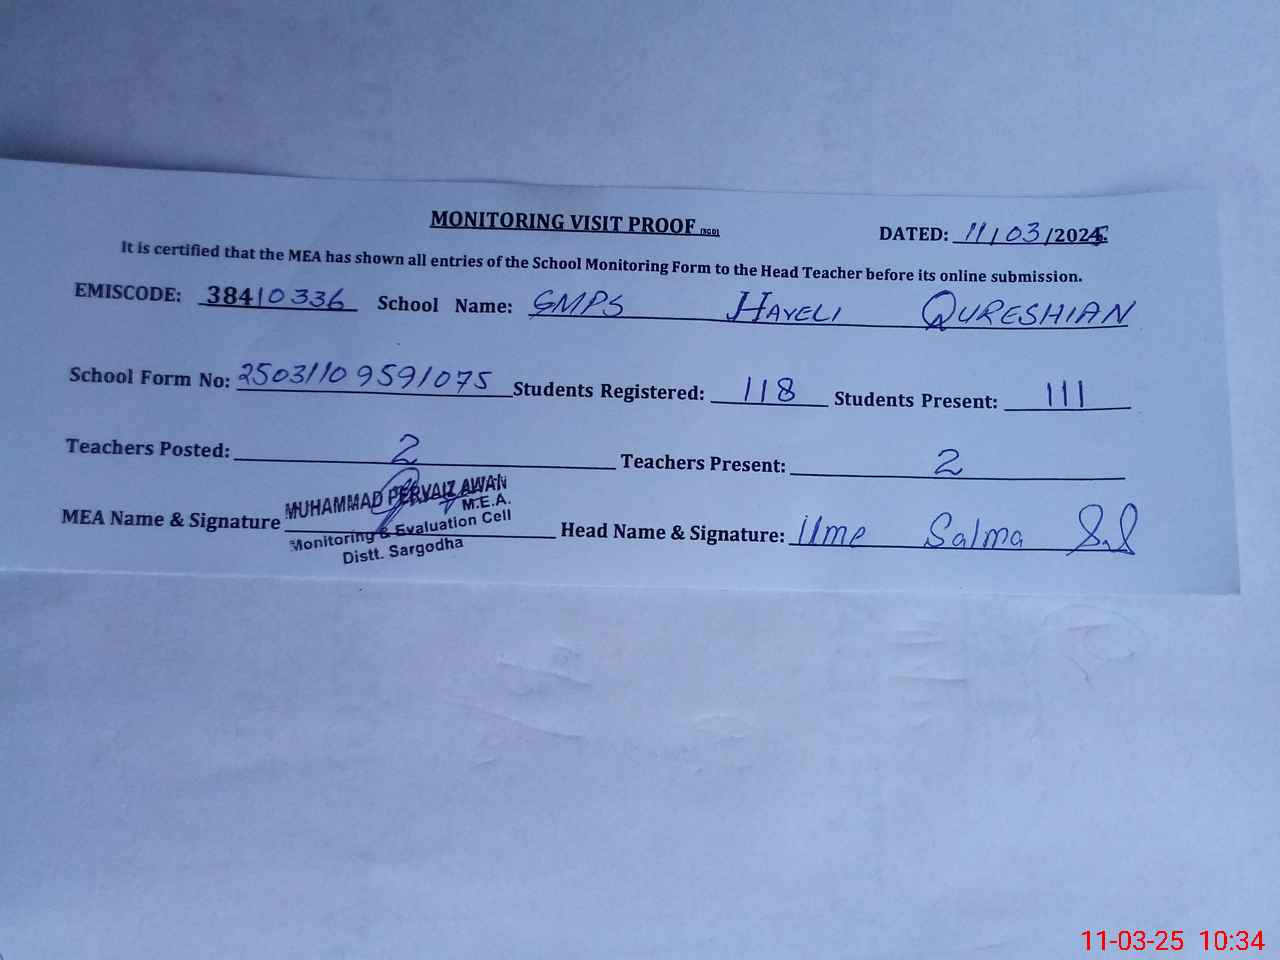 MONITORING VISIT PROOF (SGD)
DATED: 11/03/2025
It is certified that the MEA has shown all entries of the School Monitoring Form to the Head Teacher before its online submission.
EMISCODE: 38410336 School Name: GMPS HAVELI QURESHIAN
School Form No: 25031109591075 Students Registered: 118 Students Present: 111
Teachers Posted: 2 Teachers Present: 2
MEA Name & Signature Head Name & Signature: Ume Salma
MUHAMMAD PERVAIZ AWAN
M.E.A.
Monitoring & Evaluation Cell
Distt. Sargodha
11-03-25 10:34